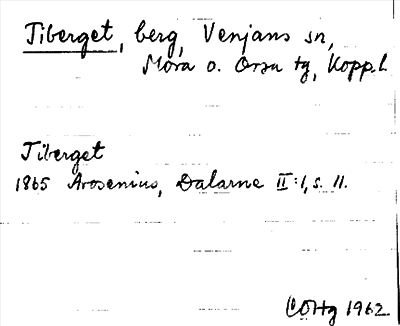 Tiberget, berg, Venjans sn,
Mora o. Orsa tg, Kopp.l.
Tiberget
1865 Arosenius, Dalarne II:1, s. 11.
COHg 1962